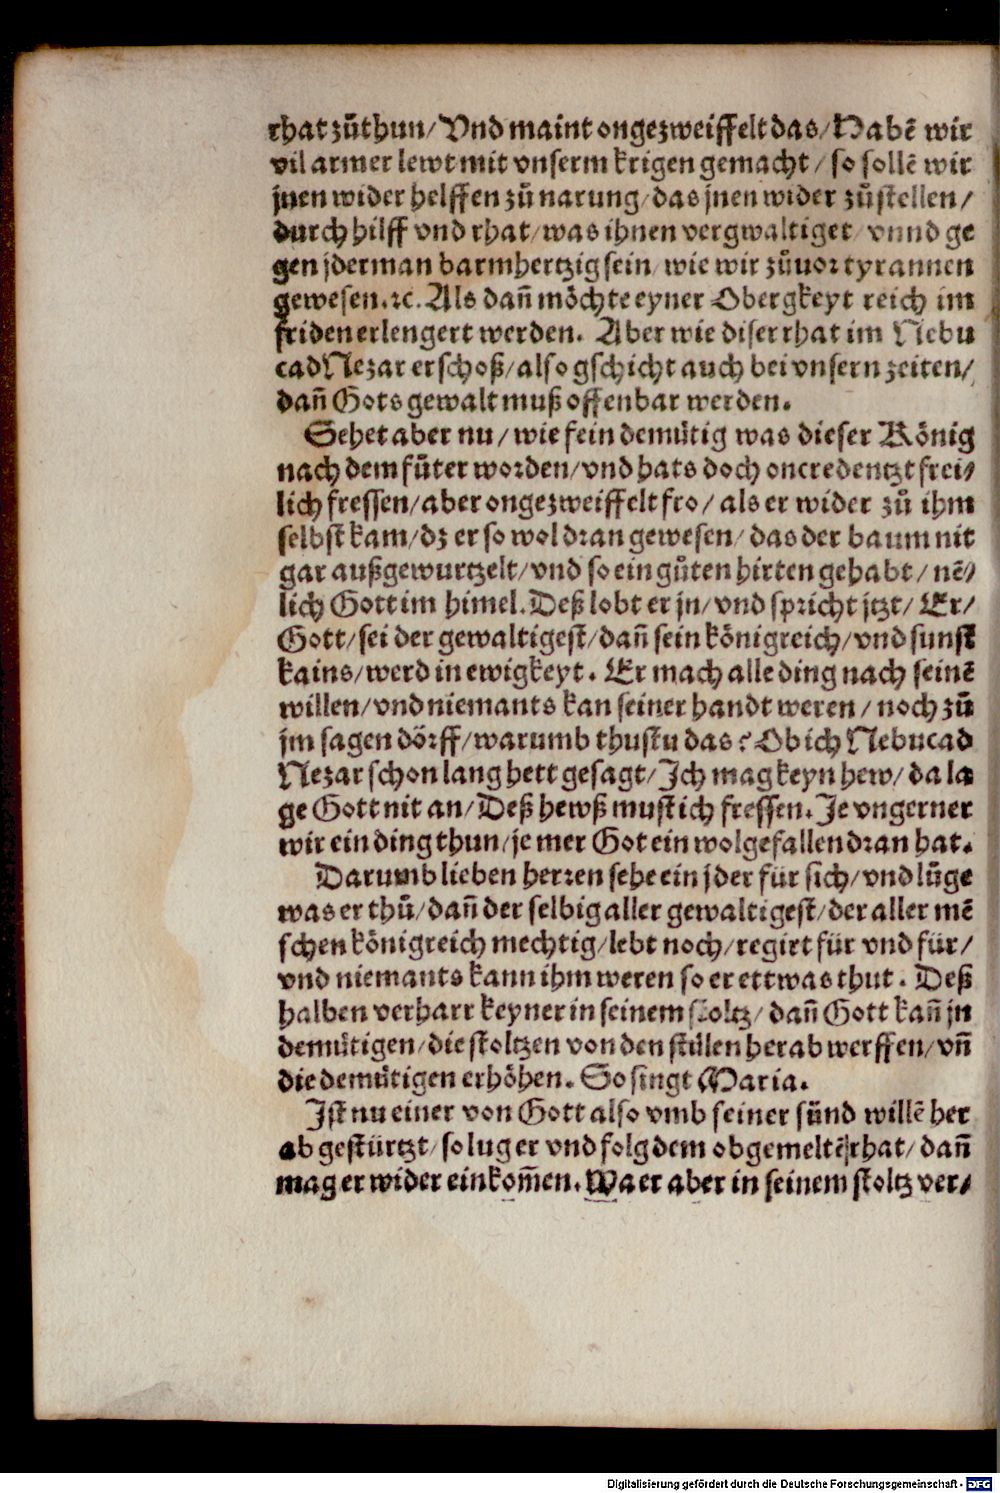 rhat zůthun/ Vnd maint ongezweiffelt das/ Habē wir
vil armer lewt mit vnserm krigen gemacht/ so sollē wir
jnen wider helffen zů narung/ das jnen wider zůstellen/
durch hilff vnd rhat/ was ihnen vergwaltiget/ vnnd ge
gen jderman barmhertzig sein/ wie wir zůuor tyrannen
gewesen. ꝛc. Als dañ möchte eyner Obergkeyt reich im
friden erlengert werden. Aber wie diser rhat im Nebu
cadNezar erschoß/ also gschicht auch bei vnsern zeiten/
dañ Gots gewalt muß offenbar werden.
Sehet aber nu/ wie fein demütig was dieser König
nach dem fůter worden/ vnd hats doch oncredentzt frei⸗
lich fressen/ aber ongezweiffelt fro/ als er wider zů ihm
selbst kam/ dz er so wol dran gewesen/ das der baum nit
gar außgewurtzelt/ vnd so ein gůten hirten gehabt/ nē⸗
lich Gott im himel. Deß lobt er jn/ vnd spricht jtzt/ Er/
Gott/ sei der gewaltigest/ dañ sein königreich/ vnd sunst
kains/ werd in ewigkeyt. Er mach alle ding nach seinē
willen/ vnd niemants kan seiner handt weren/ noch zů
jm sagen dörff/ warumb thustu das? Ob ich Nebucad
Nezar schon lang hett gesagt/ Ich mag keyn hew/ da la
ge Gott nit an/ Deß hewß must ich fressen. Je vngerner
wir ein ding thun/ je mer Got ein wolgefallen dran hat.
Darumb lieben herren sehe ein jder für sich/ vnd lůge
was er thů/ dañ der selbig aller gewaltigest/ der aller mē
schen königreich mechtig/ lebt noch/ regirt für vnd für/
vnd niemants kann ihm weren so er ettwas thut. Deß
halben verharr keyner in seinem stoltz/ dañ Gott kañ jn
demütigen/ die stoltzen von den stülen herab werffen/ vñ
die demütigen erhöhen. So singt Maria.
Ist nu einer von Gott also vmb seiner sünd willē her
ab gestürtzt/ so lug er vnd folg dem obgemeltē rhat/ dañ
mag er wider einkom̄en. Wa er aber in seinem stoltz ver⸗
Digitalisierung gefördert durch die Deutsche Forschungsgemeinschaft - DFG